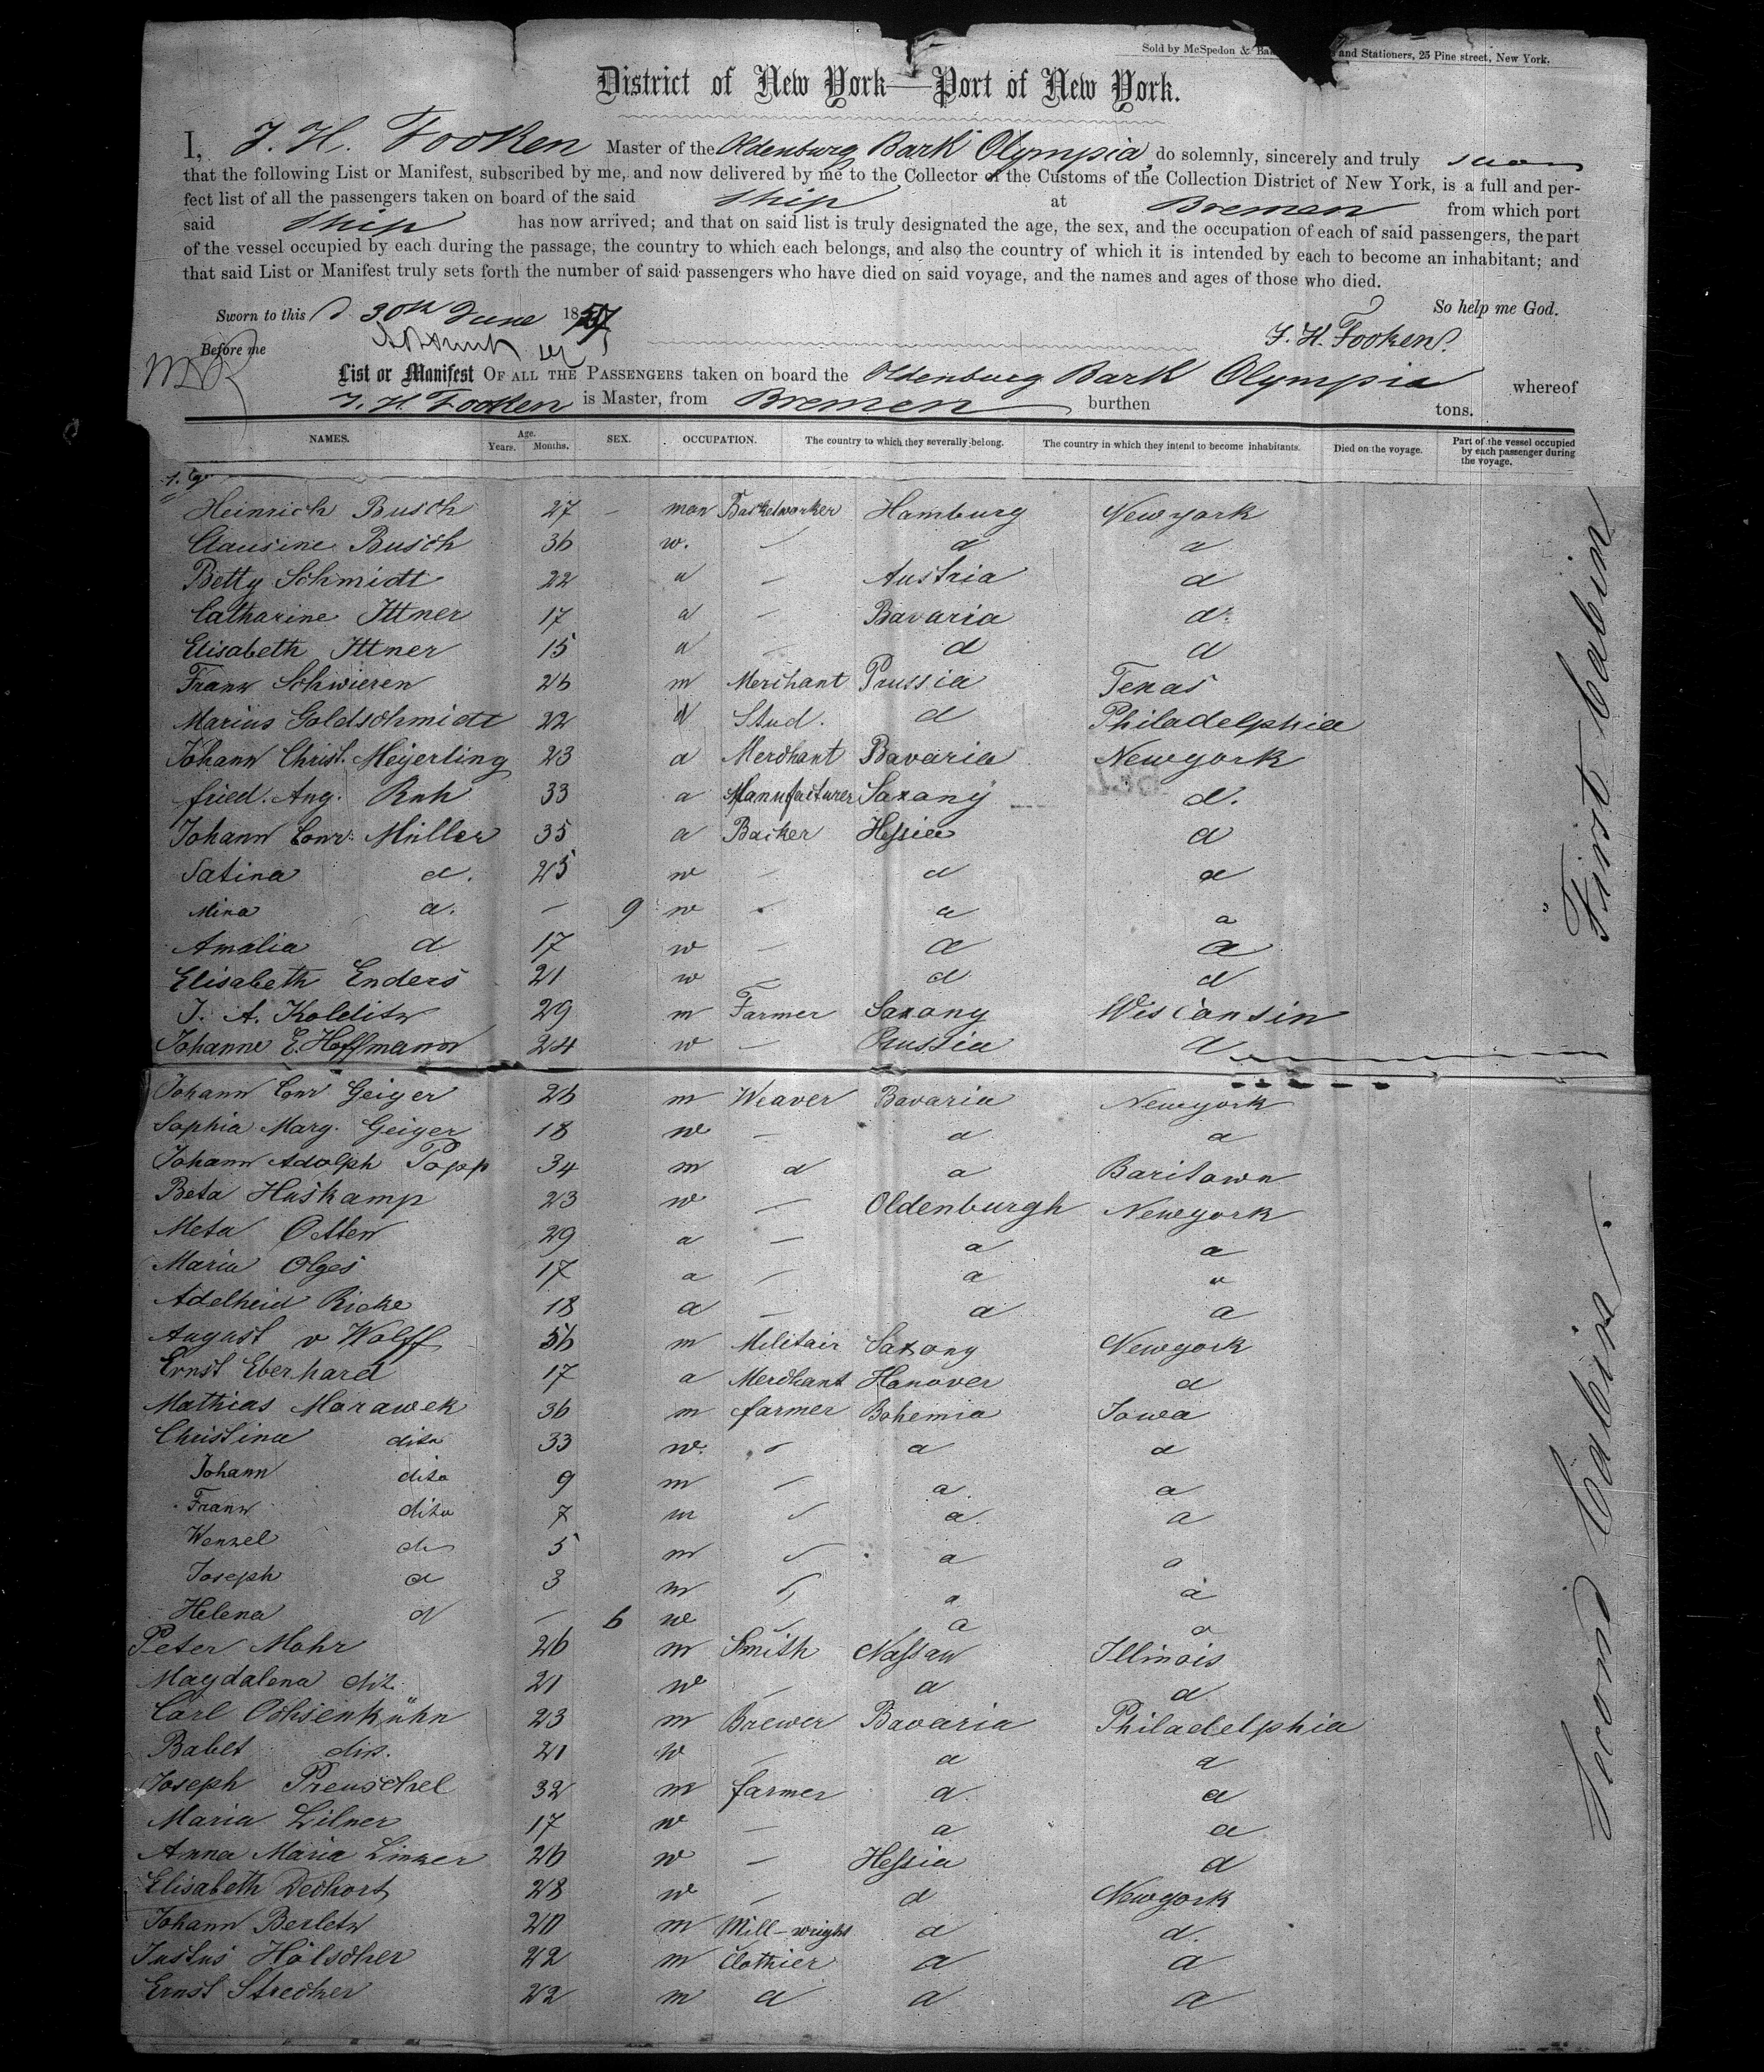 Sold by McSpedon & and Stationers, 25 Pine street, New York.
District of New York—Port of New York.
I, J. H. Fooken Master of the Oldenburg Bark Olympia, do solemnly, sincerely and truly swear
that the following List or Manifest, subscribed by me, and now delivered by me to the Collector of the Customs of the Collection District of New York, is a full and per-
fect list of all the passengers taken on board of the said ship at Bremen from which port
said ship has now arrived; and that on said list is truly designated the age, the sex, and the occupation of each of said passengers, the part
of the vessel occupied by each during the passage, the country to which each belongs, and also the country of which it is intended by each to become an inhabitant; and
that said List or Manifest truly sets forth the number of said passengers who have died on said voyage, and the names and ages of those who died.
So help me God.
Sworn to this 30th June 1857
Before me
J. H. Fooken.
List or Manifest OF ALL THE PASSENGERS taken on board the Oldenburg Bark Olympia whereof
J. H. Fooken is Master, from Bremen burthen tons.
NAMES. Age. Years. Months. SEX. OCCUPATION. The country to which they severally belong. The country in which they intend to become inhabitants. Died on the voyage. Part of the vessel occupied by each passenger during the voyage.
Heinrich Busch 27 – man Basketworker Hamburg Newyork
Clausine Busch 36 w. – d d
Betty Schmidt 22 d – Austria d
Catharine Ittner 17 d – Bavaria d.
Elisabeth Ittner 15 d – d d
Franz Schwieren 26 m Merchant Prussia Texas
Marius Goldschmidt 22 d Stud. d Philadelphia
Johann Christ. Meijerling 23 d Merchant Bavaria Newyork
fried. Aug. Ruh 33 d Manufacturer Saxony d.
Johann Conr. Müller 35 d Backer Hessia d
Satina d. 25 w – d d
Mina d. – 9 w – d d
Amalia d 17 w – d d
Elisabeth Enders 21 w – d d
J. A. Kolditz 29 m Farmer Saxony Wisconsin
Johanne E. Hoffmann 24 w – Prussia d
First Cabin
Johann Conr Geiger 26 m Weaver Bavaria Newyork
Sophia Marg. Geiger 18 w – d d
Johann Adolph Popp 34 m d d Baritown
Beta Huskamp 23 w – Oldenburgh Newyork
Meta Otten 29 d – d d
Maria Olges 17 d – d d
Adelheid Ricke 18 d – d d
August v Wolff 56 m Militair Saxony Newyork
Ernst Eberhard 17 d Merchant Hanover d
Mathias Marawek 36 m farmer Bohemia Iowa
Christina dito 33 w. – d d
Johann dito 9 m – d d
Franz dito 7 m – d d
Wenzel do 5 m – d d
Joseph d 3 m – d d
Helena d – 6 w – d d
Peter Mohr 26 m Smith Nassau Illinois
Magdalena dit. 21 w – d d
Carl Ochsenkühn 23 m Brewer Bavaria Philadelphia
Babet dit. 21 w – d d
Joseph Preuschel 32 m farmer d d
Maria Lilner 17 w – d d
Anna Maria Linker 26 w – Hessia d
Elisabeth Dechort 28 w – d Newyork
Johann Berletz 20 m Mill-wright d d.
Justus Hölscher 22 m Clothier d d
Ernst Strecker 22 m d d d
Second Cabin.